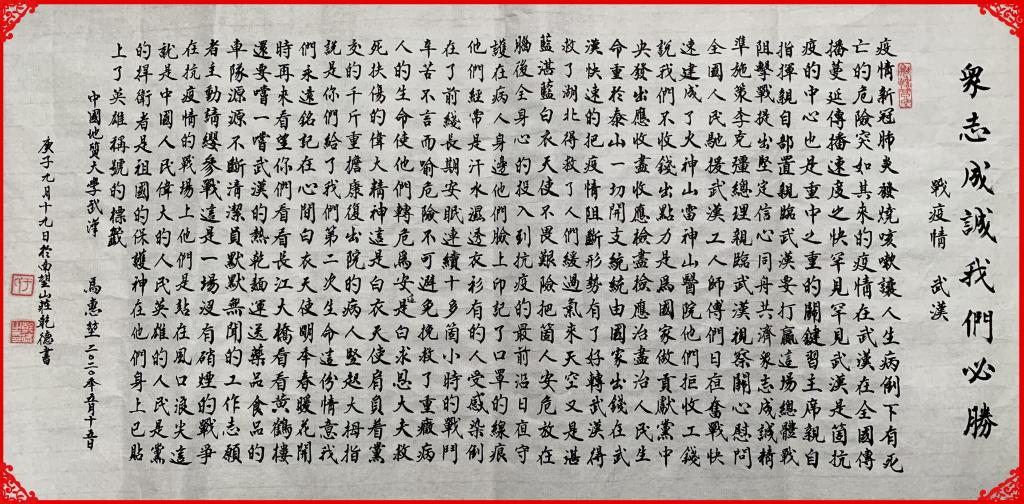 眾志成誠我們必勝
戰疫情　武漢
疫情新冠肺炎發燒咳嗽讓人生病倒下有死
亡的危險突如其來的疫情在武漢在全國傳
播蔓延傳播速度之快罕見罕見武漢是箇抗
疫的中心也是重中之重的關鍵習主席親自
指揮親自部置親臨武漢要打贏這場總體戰
阻擊戰提出堅定信心同舟共濟眾志成誠精
準施策李克彊總理親臨武漢視察關心慰問
全國人民馳援武漢工人師傅們日夜奮戰快
速建成了火神山雷神山醫院他們拒收工錢
說我們不收錢出點力是為國家做貢獻黨中
央發出應收盡收應檢盡檢應治盡治人民生
命重於泰山一切開支統統由國家出錢在武
漢快速的把疫情阻斷形勢有了好轉武漢得
救了湖北得救了人們緩過氣來天空又是湛
藍湛藍白衣天使不畏艱險把箇人安危放在
腦後全身心的投入到抗疫的最前沿日夜守
護在病人身邊他們臉上印記了口罩的線痕
他們經常是汗水濕透衣衫有的人受感染倒
在了前綫長期安眠連續十多箇小時的戰鬥
辛苦不言而喻危險不可避免挽救了重癥病
人的生命使他們轉危為安這是白求恩大夫救
死扶傷的偉大精神這是白衣天使肩負着黨
交的千斤重擔康復出院的病人竪起大拇指
說是你們給了我們第二次生命這份情意我
們永遠銘記在心間白衣天使明年春暖花開
時再來看望你們看看長江大橋看看黃鶴樓
還要嚐一嚐武漢的熱乾麵運送藥品食品的
車隊源源不斷清潔員默默無聞的工作志願
者主動請纓參戰這是一場沒有硝煙的戰爭
在抗疫情的戰場上他們是站在風口浪尖這
就是中國人民偉大的人民英雄的人民是黨
的捍衛者是祖國的保護神在他們身上已貼
上了英雄稱號的標籤
中國地質大學武漢　馬惠塹二〇二〇年五月十五日
庚子九月十九日於南望山莊乾德書